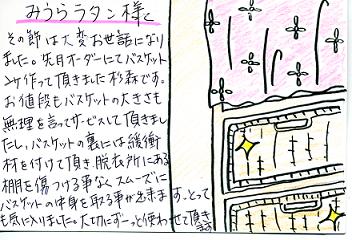 みうらラタン様
その節は大変お世話になり
ました。先月オーダーにてバスケット
2ケ作って頂きました杉森です。
お値段もバスケットの大きさも
無理を言ってサービスして頂きまし
たし。バスケットの裏には緩衝
材を付けて頂き、脱衣所にある
棚を傷つける事なくスムーズに
バスケットの中身を取る事が出来ます。とって
も気に入りました。大切にずーっと使わせて頂き